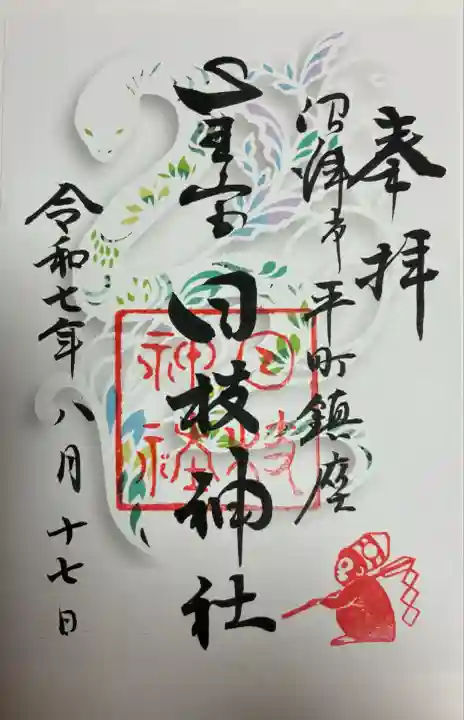 奉拝
沼津市平町鎮座
山王宮 日枝神社
日枝
神社
令和七年八月十七日